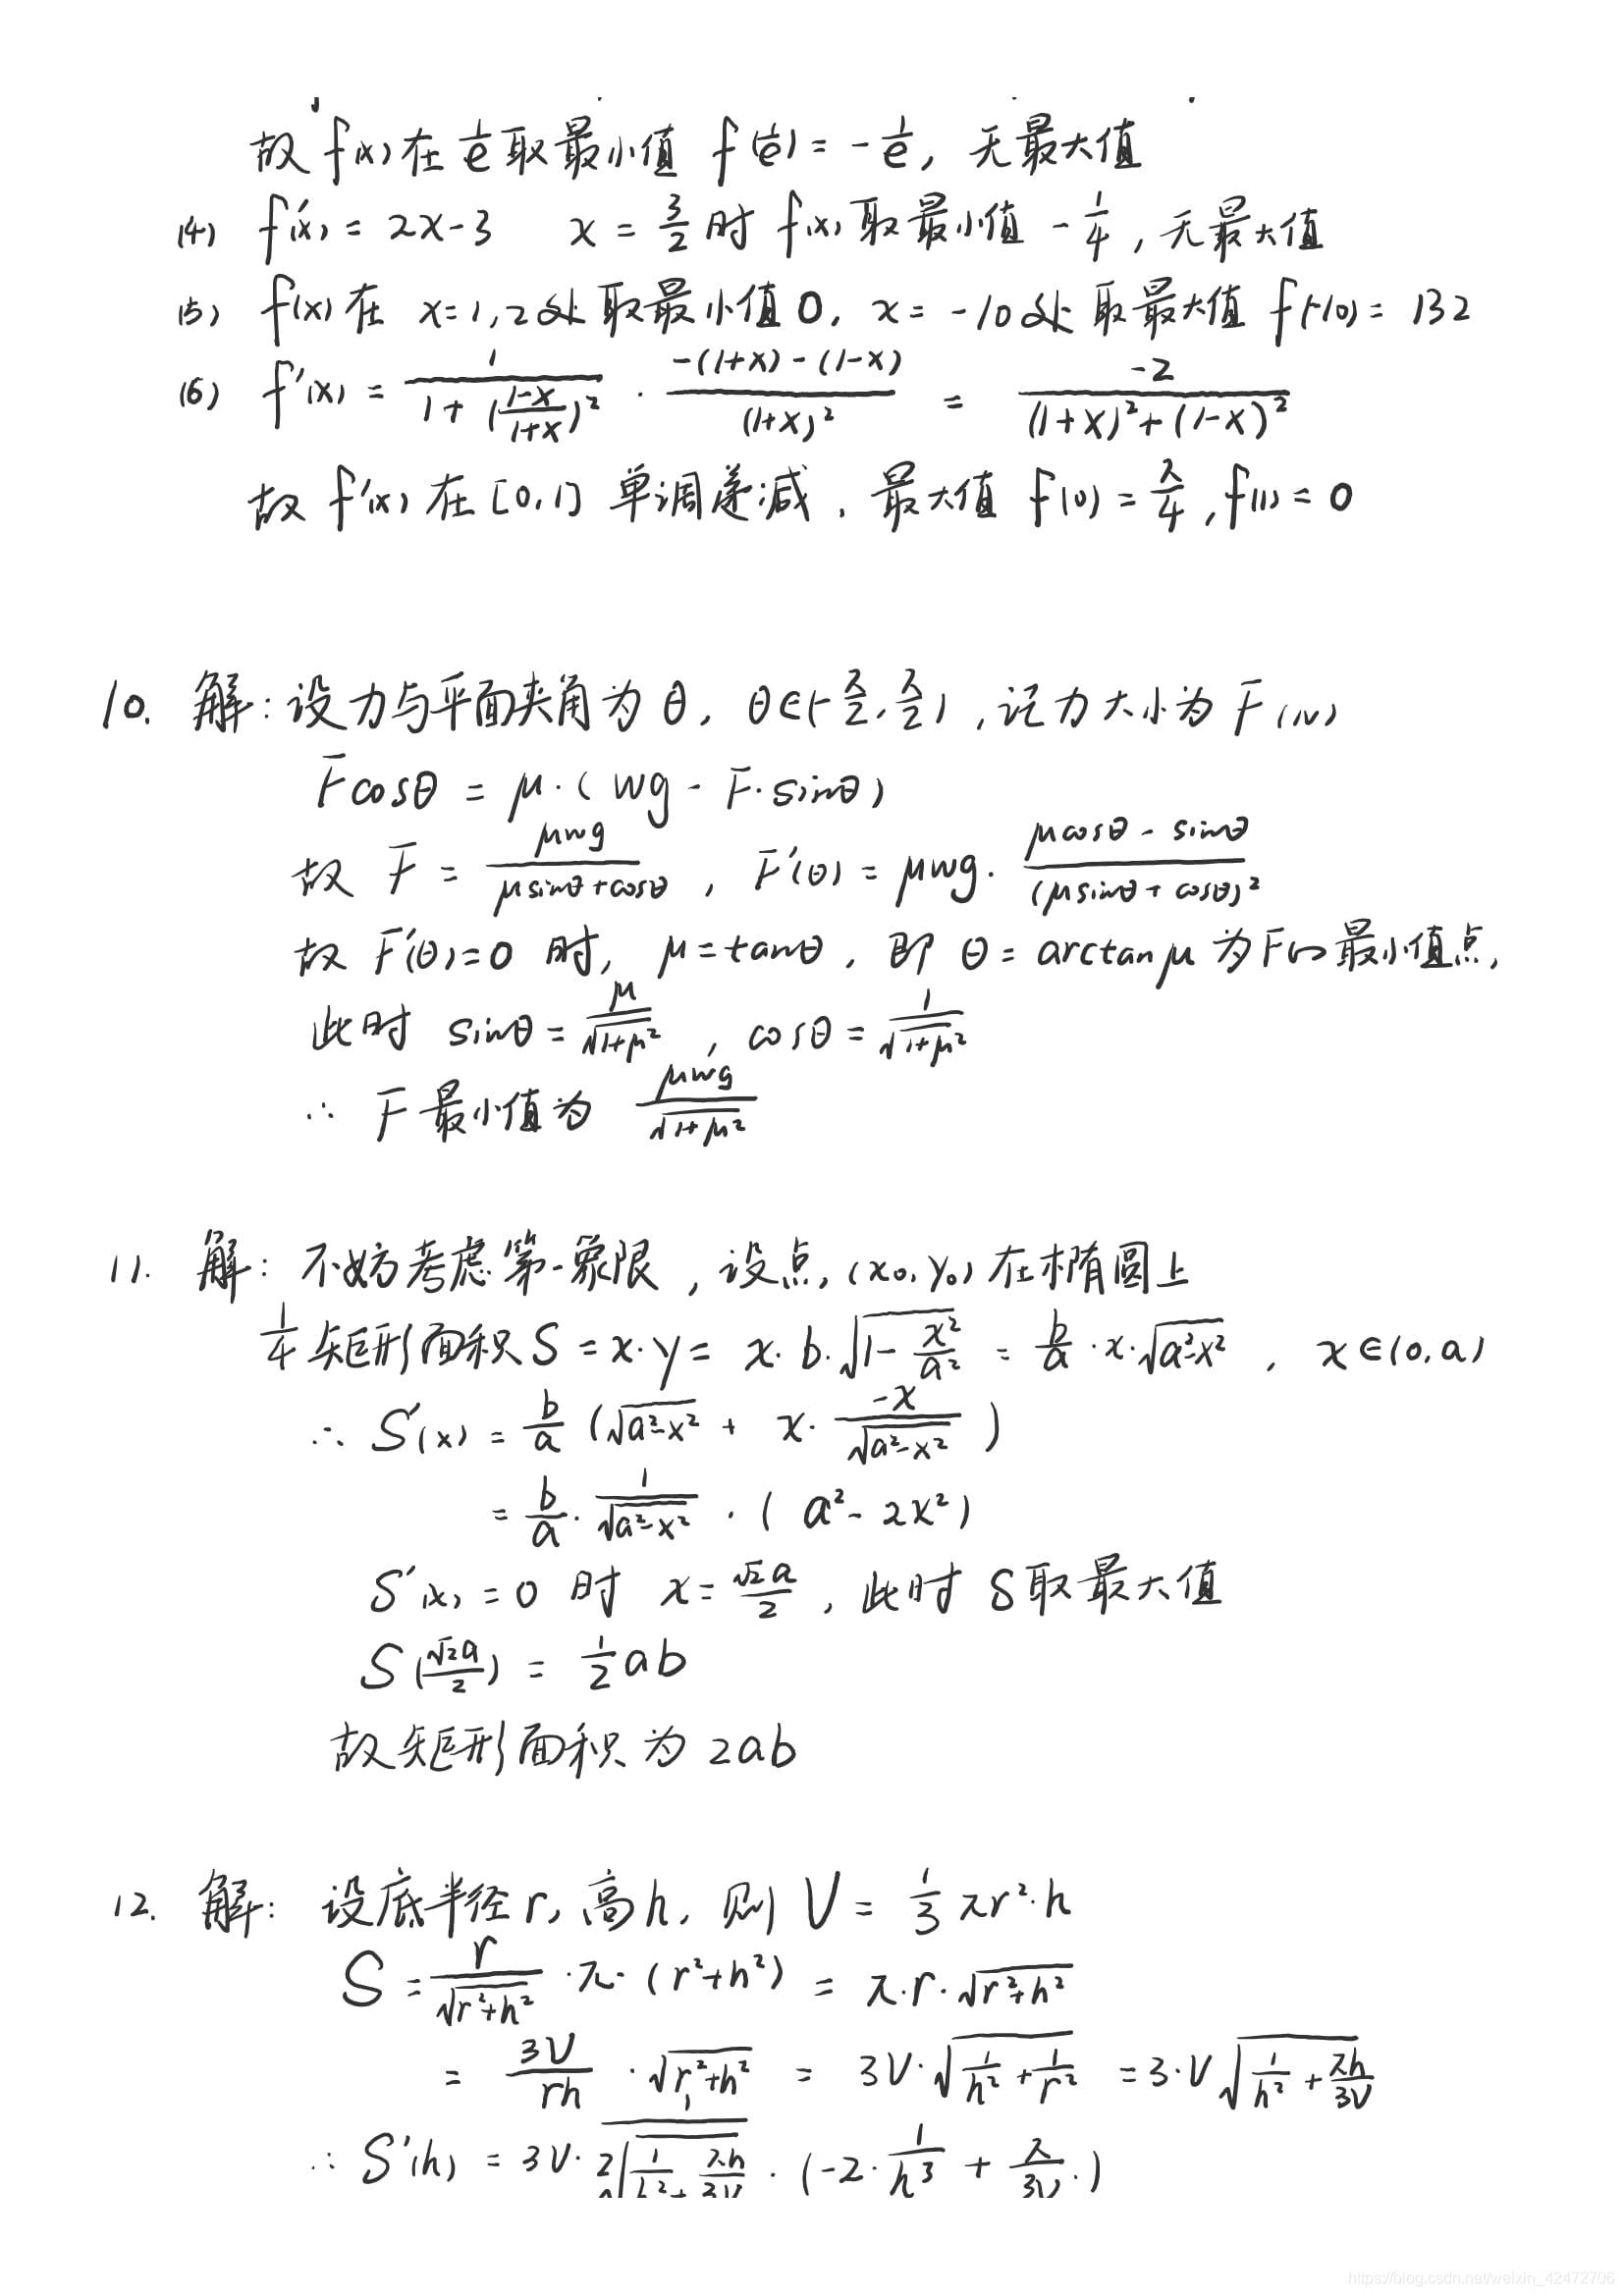 故 f(x) 在 1/e 取最小值 f(1/e) = -1/e, 无最大值
(4) f'(x) = 2x-3 x = 3/2 时 f(x) 取最小值 -1/4, 无最大值
(5) f(x) 在 x=1,2处取最小值0, x=-10处取最大值 f(-10)= 132
(6) f'(x) = 1/(1+((1-x)/(1+x))²) · (-(1+x)-(1-x))/(1+x)² = -2/((1+x)²+(1-x)²)
故 f'(x) 在 [0,1] 单调递减, 最大值 f(0) = π/4, f(1) = 0
10. 解: 设力与平面夹角为 θ, θ∈(-π/2, π/2), 记力大小为 F(N)
Fcosθ = μ·(wg - F·sinθ)
故 F = μwg/(μsinθ+cosθ), F'(θ) = μwg·(μcosθ - sinθ)/(μsinθ+cosθ)²
故 F'(θ)=0 时, μ=tanθ, 即 θ=arctanμ 为F的最小值点,
此时 sinθ = μ/√(1+μ²), cosθ = 1/√(1+μ²)
∴ F最小值为 μwg/√(1+μ²)
11. 解: 不妨考虑第一象限, 设点, (x₀,y₀) 在椭圆上
1/4 矩形面积S = x·y = x·b·√(1-x²/a²) = b/a·x·√(a²-x²), x∈(0,a)
∴ S'(x) = b/a (√(a²-x²) + x·(-x)/√(a²-x²))
= b/a·1/√(a²-x²)·(a²-2x²)
S'(x)=0 时 x=√2a/2, 此时 S取最大值
S(√2a/2) = 1/2 ab
故矩形面积为 2ab
12. 解: 设底半径 r, 高h, 则 V = 1/3 πr²·h
S = r/√(r²+h²)·π·(r²+h²) = π·r·√(r²+h²)
= 3V/rh·√(r²+h²) = 3V·√(1/h²+1/r²) = 3·V√(1/h²+πh/3V)
∴ S'(h) = 3V·1/(2√(1/h²+πh/3V))·(-2·1/h³+π/3V·)
https://blog.csdn.net/weixin_42472706